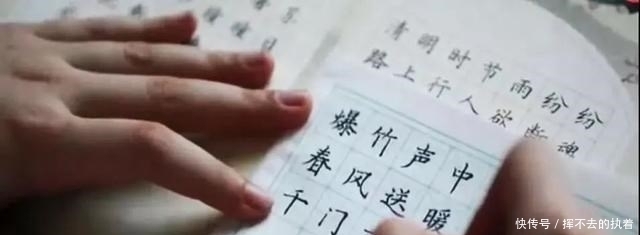 清明时节雨纷纷
路上行人欲断魂
爆竹声中
春风送暖
千门
快传号 / 挥不去的执着